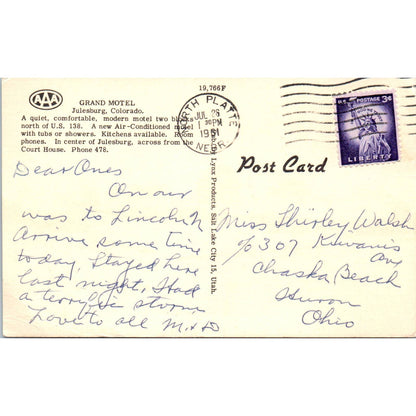 AAA
GRAND MOTEL
Julesburg, Colorado.
A quiet, comfortable, modern motel two blocks
north of U.S. 138. A new Air-Conditioned motel
with tubs or showers. Kitchens available. Room
phones. In center of Julesburg, across from the
Court House. Phone 478.
19,766F
NORTH PLATTE
JUL 26
1 30 PM
1961
NEBR
U.S. 3¢
LIBERTY
by Lynx Products, Salt Lake City 15, Utah.
Post Card
Dear Ones
On our
was to Lincoln N
Arrive some time
today, Stayed here
last night, Had
a terrific storm
Love to all M+D
Miss Shirley Walsh
% 307 Kiwanis
Av
Chaska Beach
Huron
Ohio